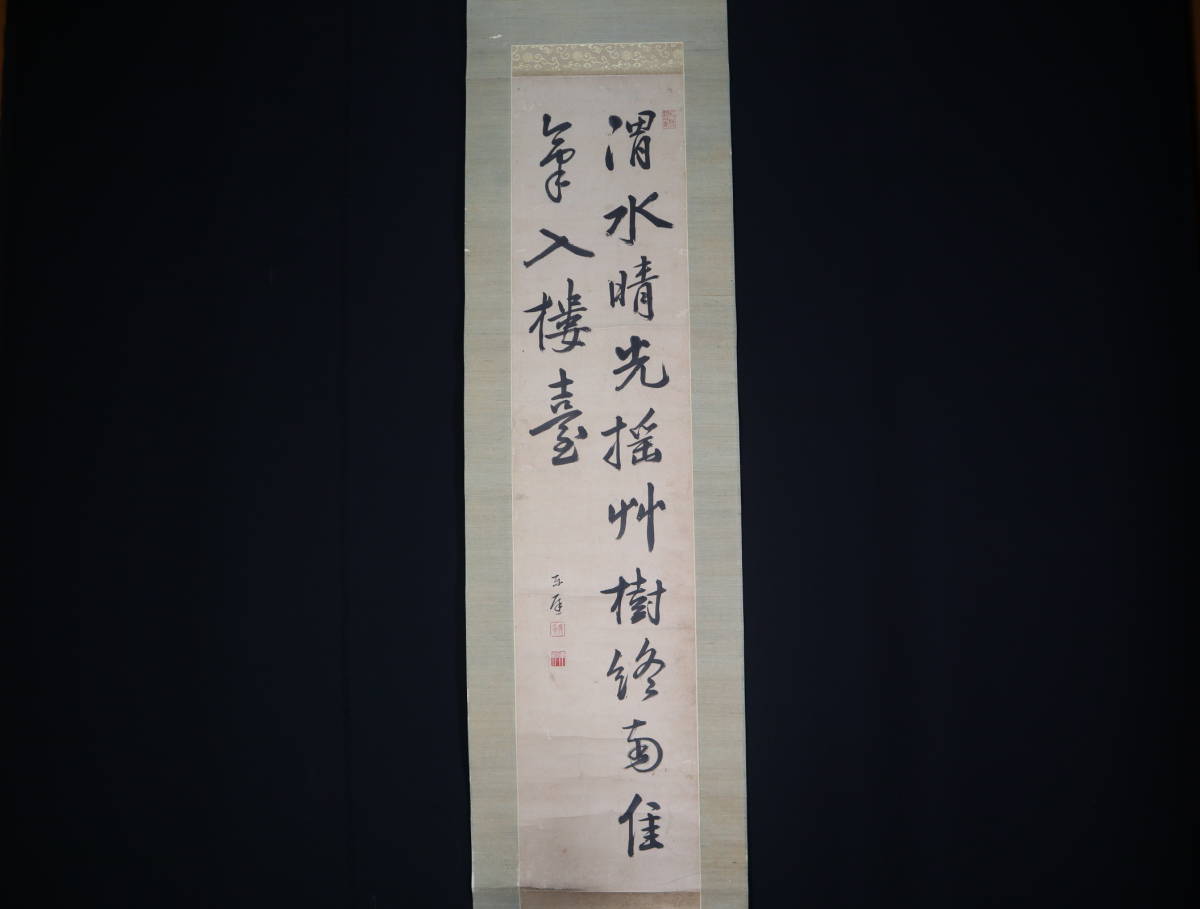 渭水晴光揺艸樹終南佳
氣入樓臺